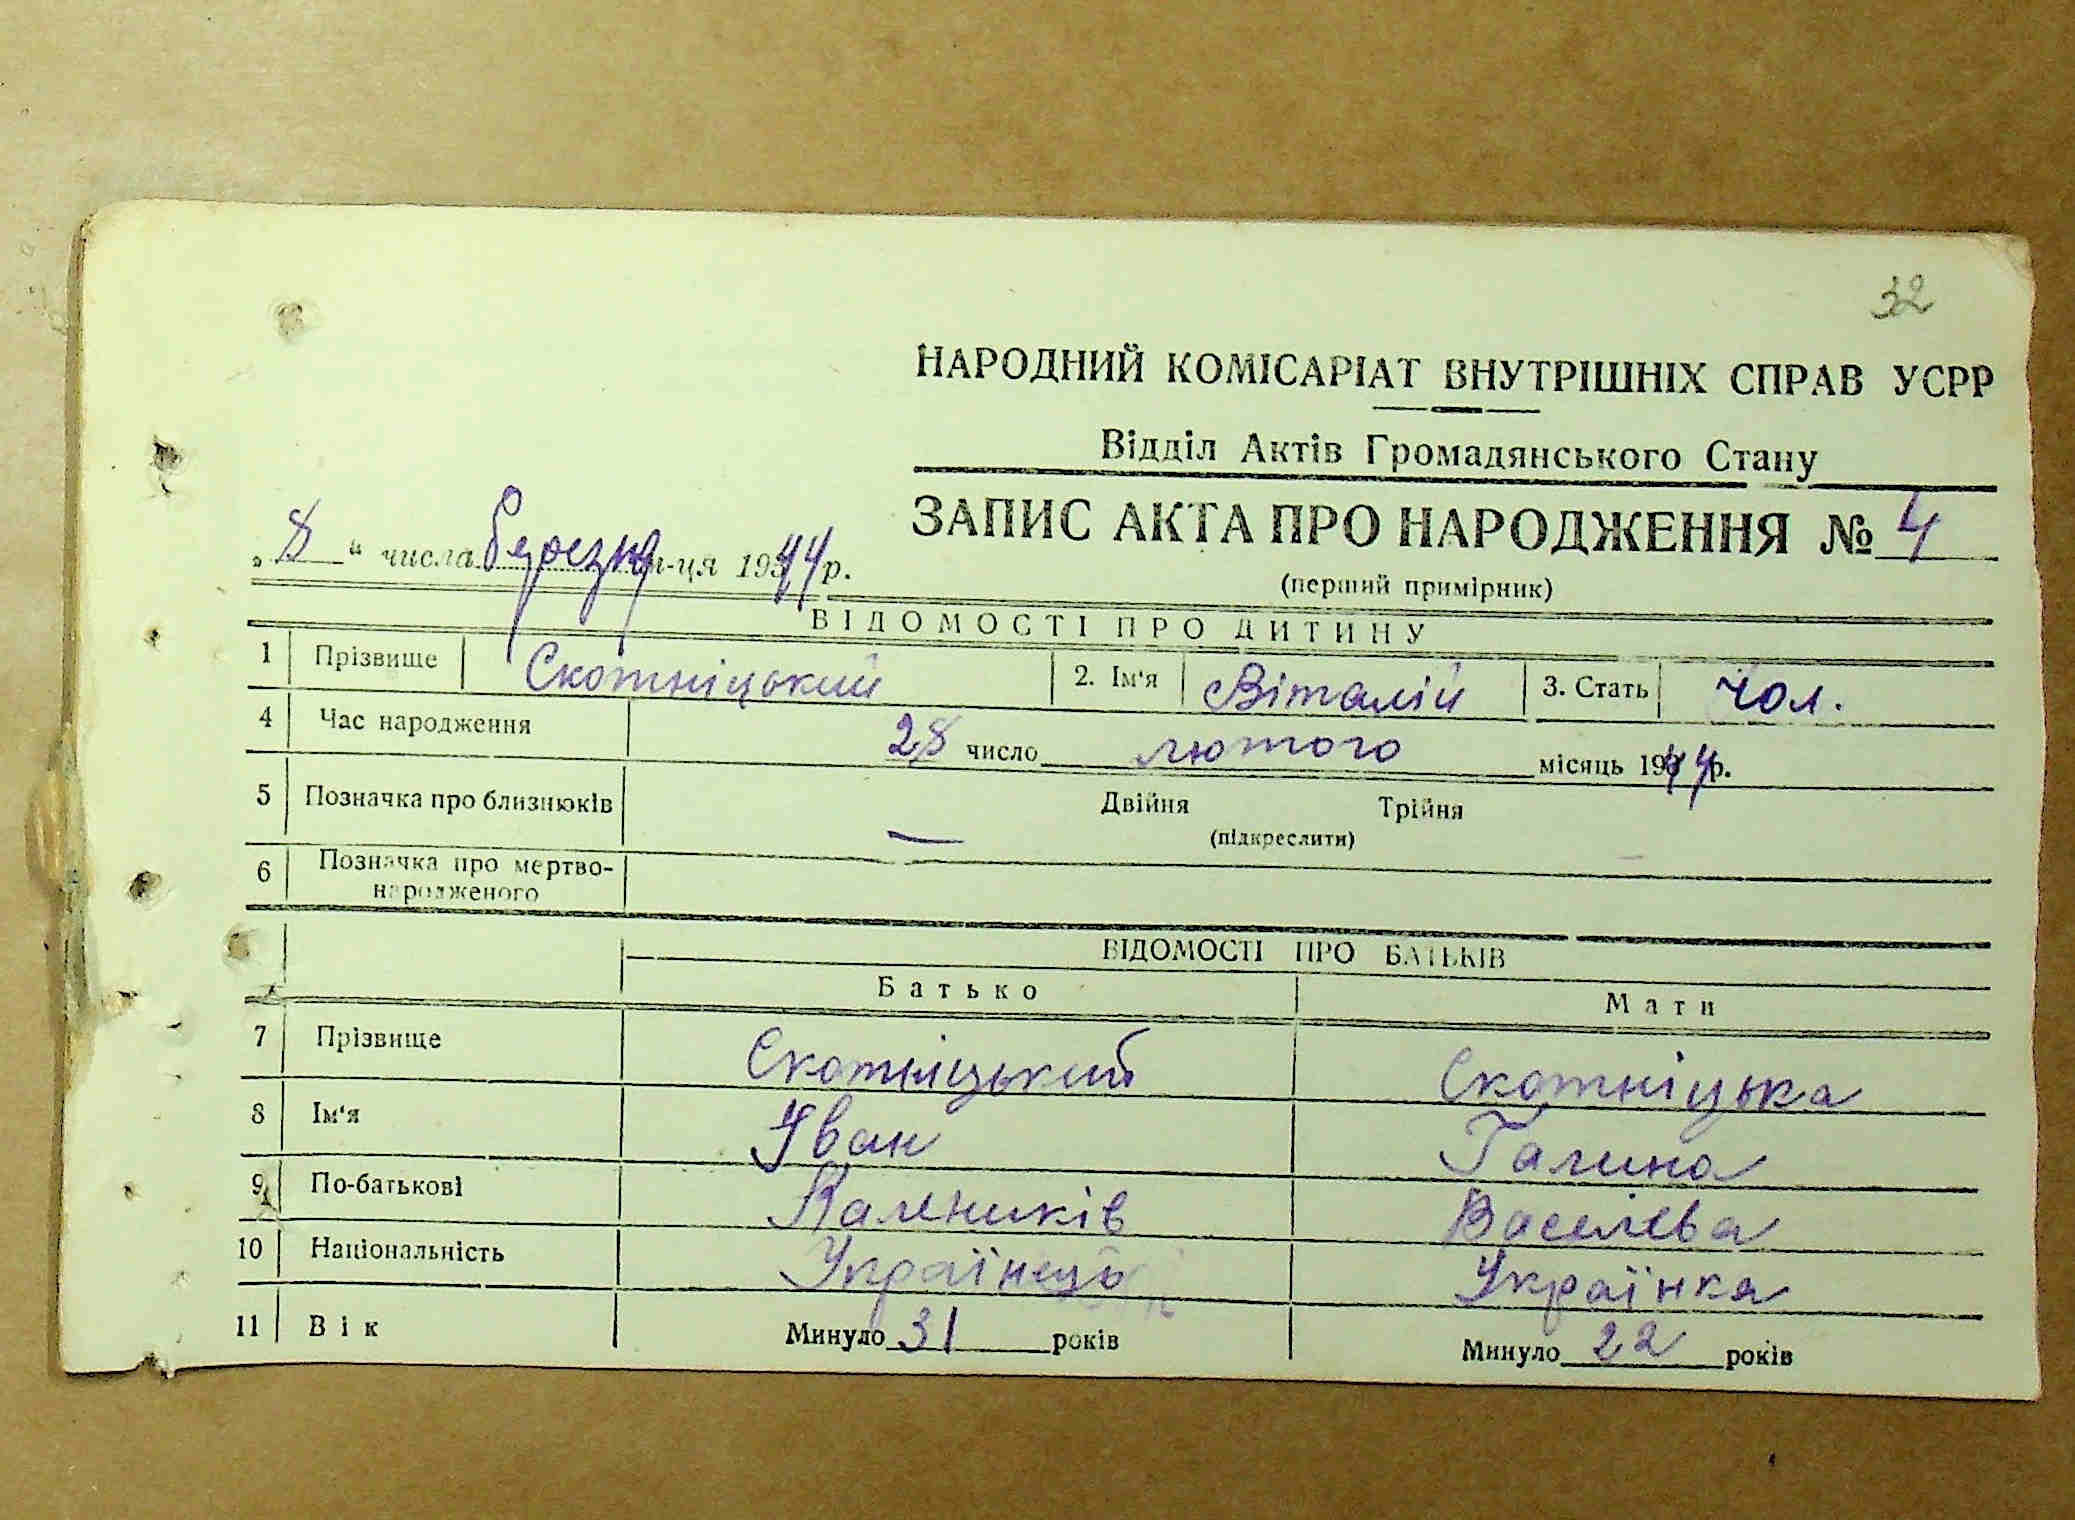 32
НАРОДНИЙ КОМІСАРІАТ ВНУТРІШНІХ СПРАВ УСРР
Відділ Актів Громадянського Стану
ЗАПИС АКТА ПРО НАРОДЖЕННЯ № 4
(перший примірник)
„ 8 “ числа березня м-ця 1944 р.
ВІДОМОСТІ ПРО ДИТИНУ
1 Прізвище Скотніцький 2. Ім‘я Віталій 3. Стать Чол.
4 Час народження 28 число лютого місяць 1944 р.
5 Позначка про близнюків — Двійня Трійня
(підкреслити)
6 Позначка про мертво-
народженого
ВІДОМОСТІ ПРО БАТЬКІВ
Батько Мати
7 Прізвище Скотніцький Скотніцька
8 Ім‘я Іван Галина
9 По-батькові Калеників Васелева
10 Національність Українець Українка
11 Вік Минуло 31 років Минуло 22 років